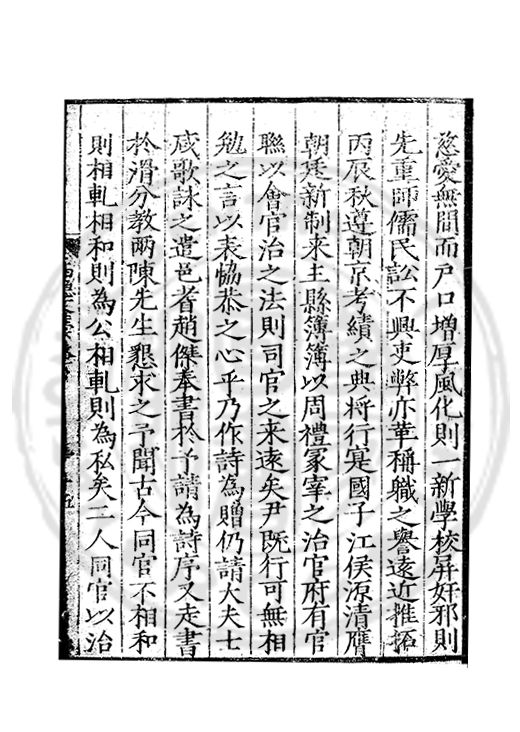 慈愛無間而戶口增厚風化則一新學校屏奸邪則
先重師儒民訟不興吏弊亦革稱職之譽遠近推拓
丙辰秋遵朝京考績之典將行寔國子江侯源清膺
朝廷新制来主縣簿簿以周禮冢宰之治官府有官
聯以會官治之法則司官之来遠矣尹既行可無相
勉之言以表恊恭之心乎乃作詩為贈仍請大夫士
咸歌詠之遣邑者趙傑奉書於予請為詩序又走書
於滑分教兩陳先生懇求之予聞古今同官不相和
則相軋相和則為公相軋則為私矣二人同官以治